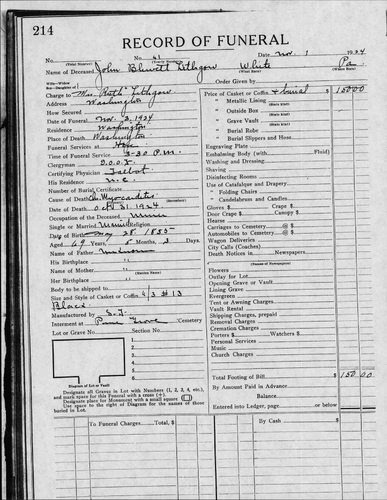 214
RECORD OF FUNERAL
No. No. 41 Date Nov. 1 1924
(Total Number) (Yearly Number)
Name of Deceased John Lithgow White Pa.
(What Race) (Where Born)
Charge to Mrs. Ruth Lithgow
Order Given by
Address Washington
How Secured
Date of Funeral Nov. 3, 1924
Residence Washington
Place of Death Washington
Funeral Services at
Time of Funeral Service 3-30 P.M.
Clergyman I.O.O.F.
Certifying Physician Talbot
His Residence N.C.
Number of Burial Certificate
Cause of Death Ch. Myocarditis
Date of Death Oct 31 1924
Occupation of the Deceased Miner
Single or Married Religion
Date of Birth May 28 1855
Aged 69 Years, 5 Months, 3 Days
Name of Father Unknown
His Birthplace "
Name of Mother "
(Maiden Name)
Her Birthplace "
Body to be shipped to
Size and Style of Casket or Coffin 6/3 #13
Black
Manufactured by
Interment at Pine Grove Cemetery
Lot or Grave No. Section No.
1
2
3
4
5
6
Diagram of Lot or Vault
Designate all Graves in Lot with Numbers (1, 2, 3, 4, etc.),
and mark space for this Funeral with a cross (+).
Designate place for Monument with a small square
Use space to right of Diagram for the names of those
buried in Lot.
Price of Casket or Coffin & burial $ 150 00
" Metallic Lining
" Outside Box
" Grave Vault
" Burial Robe
" Burial Slippers and Hose
Engraving Plate
Embalming Body (with Fluid)
Washing and Dressing
Shaving
Disinfecting Rooms
Use of Catafalque and Drapery
" Folding Chairs
" Candelabrum and Candles
Gloves $ Crape $
Door Crape $ Canopy $
Hearse
Carriages to Cemetery @ $
Automobiles to Cemetery @ $
Wagon Deliveries
City Calls (Coaches)
Death Notices in Newspapers
(Names of Newspapers)
Flowers
Outlay for Lot
Opening Grave or Vault
Lining Grave
Evergreen
Tent or Awning Charges
Vault Rental
Shipping Charges, prepaid
Removal Charges
Cremation Charges
Porters $ Watchers $
Personal Services
Music
Church Charges
Total Footing of Bill $ 150 00
By Amount Paid in Advance
Balance
Entered into Ledger, page or below
To Funeral Charges Total, $ Total, $